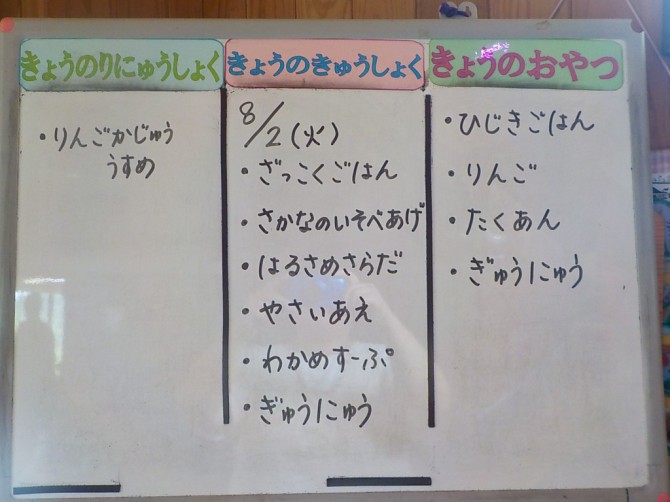 きょうのりにゅうしょく
・りんごかじゅう
うすめ
きょうのきゅうしょく
8/2(火)
・ざっこくごはん
・さかなのいそべあげ
・はるさめさらだ
・やさいあえ
・わかめすーぷ
・ぎゅうにゅう
きょうのおやつ
・ひじきごはん
・りんご
・たくあん
・ぎゅうにゅう